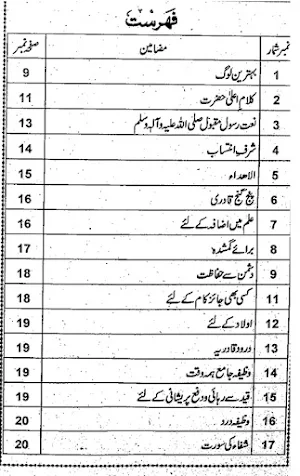 فہرست
نمبر شمار مضامین صفحہ نمبر
1 بہترین لوگ 9
2 کلام اعلیٰ حضرت 11
3 نعت رسول مقبول صلی اللہ علیہ وآلہ وسلم 13
4 شرف انتساب 14
5 الاھداء 15
6 پنج گنج قادری 16
7 علم میں اضافہ کے لئے 16
8 برائے گمشدہ 17
9 دشمن سے حفاظت 18
11 کسی بھی جائز کام کے لئے 18
12 اولاد کے لئے 19
13 درود قادریہ 19
14 وظیفہ جامع ہمہ وقت 19
15 قید سے رہائی و دفع پریشانی کے لئے 19
16 وظیفہ درد 20
17 شفاء کی سورت 20